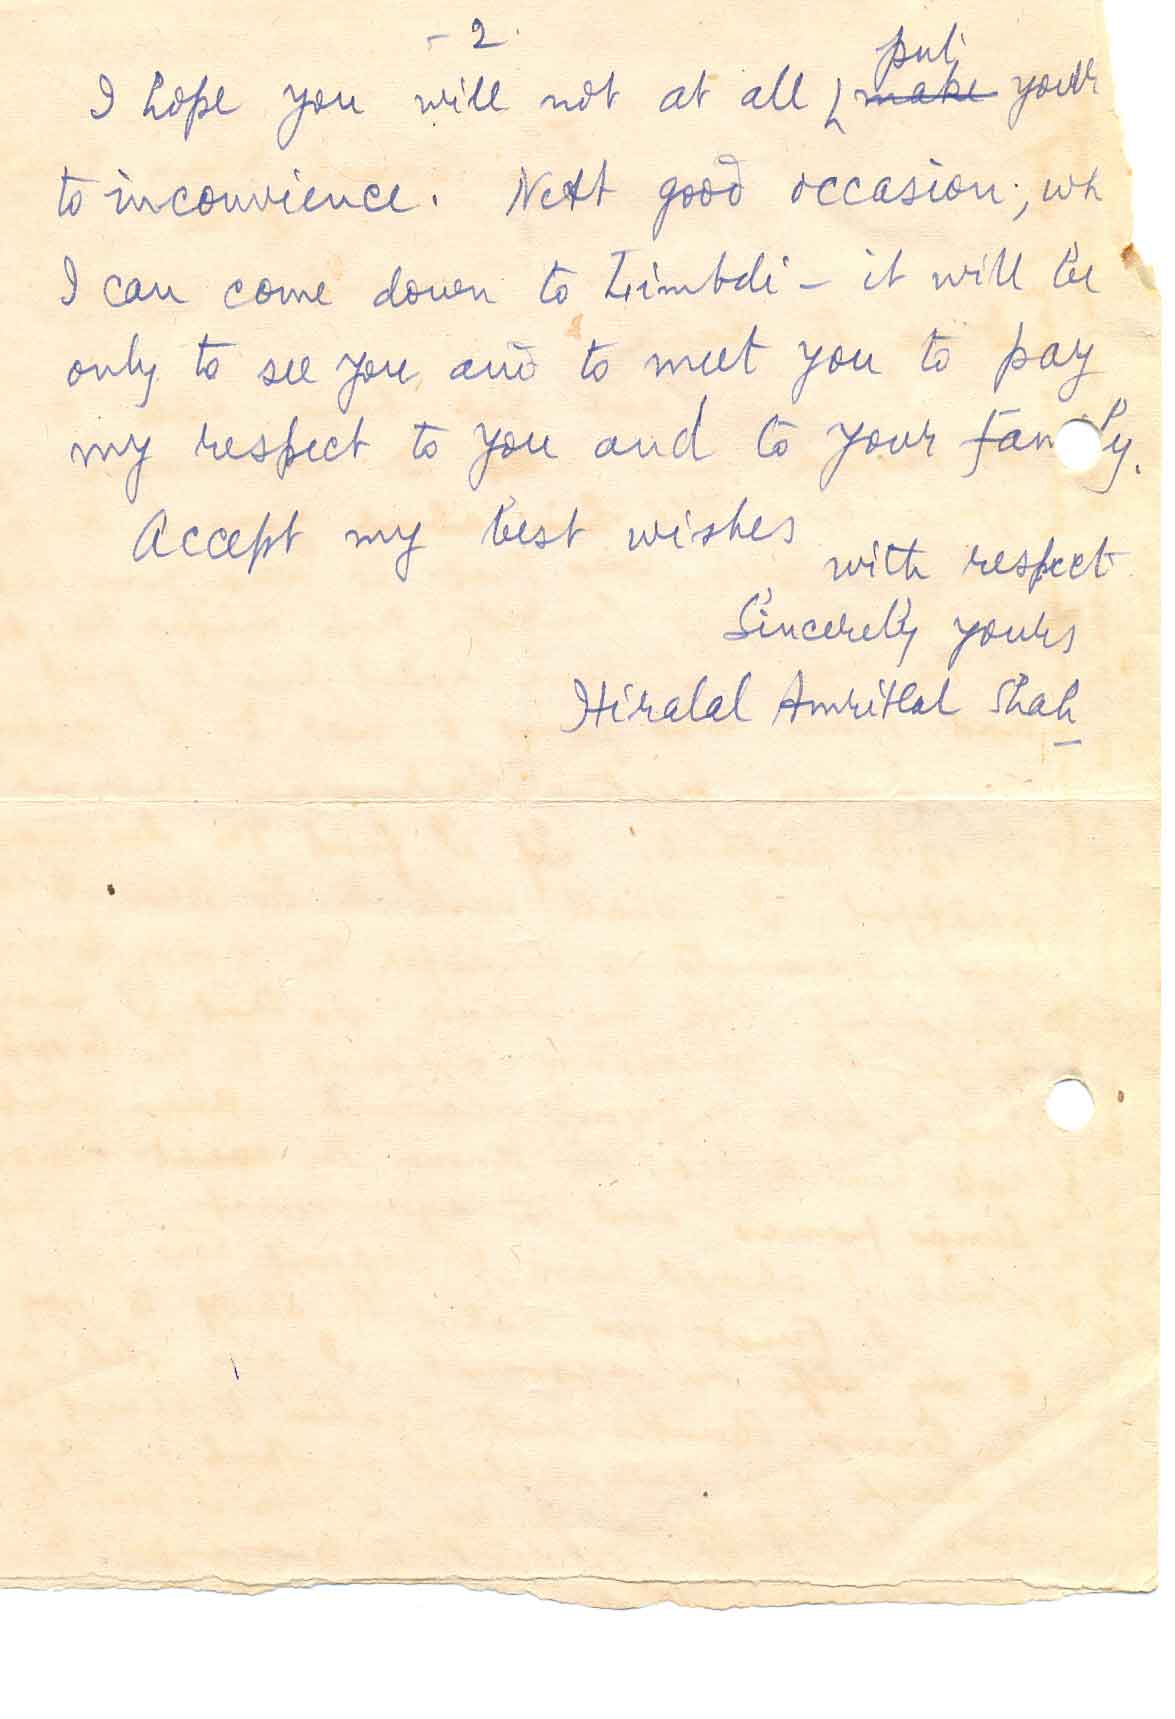 - 2.
put
I hope you will not at all make your
to inconvience. Next good occasion, wh
I can come down to Limbdi - it will be
only to see you and to meet you to pay
my respect to you and to your family.
Accept my best wishes
with respect
Sincerely yours
Hiralal Amritlal Shah